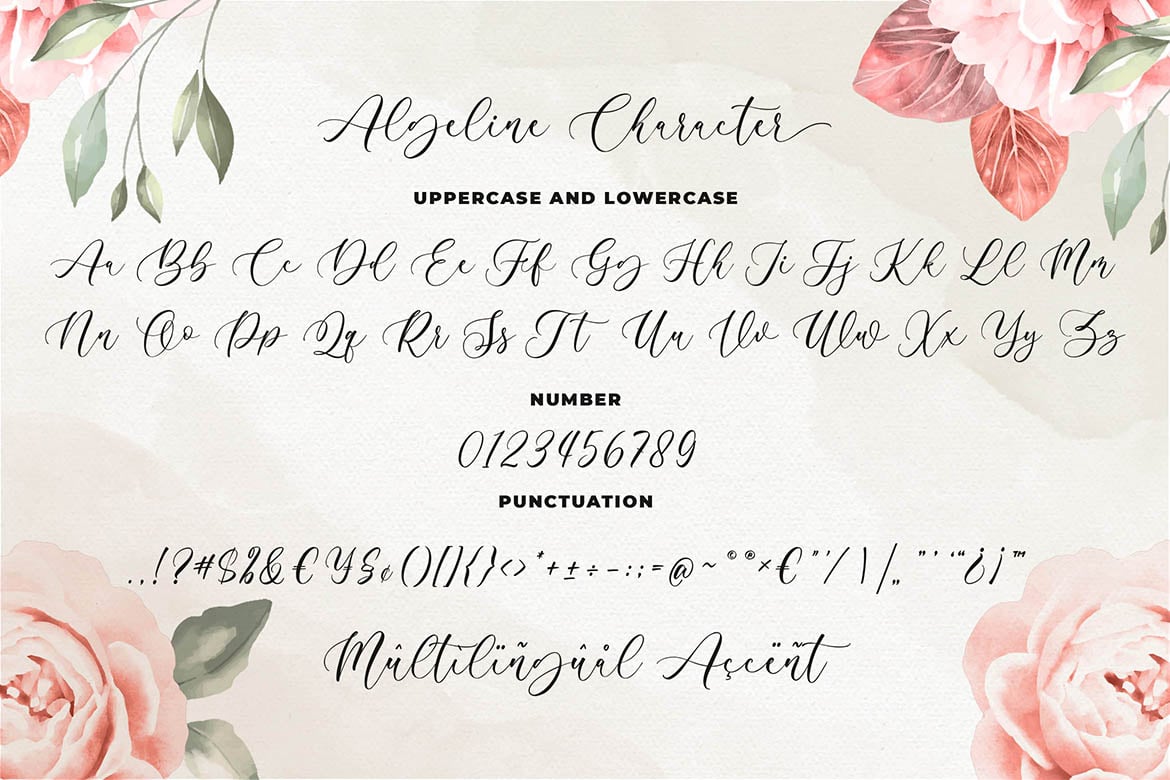 Algeline Character
UPPERCASE AND LOWERCASE
Aa Bb Cc Dd Ee Ff Gg Hh Ii Jj Kk Ll Mm
Nn Oo Pp Qq Rr Ss Tt Uu Vv Ww Xx Yy Zz
NUMBER
0123456789
PUNCTUATION
.,!?#$%&€¥§¢()[]{}<>*+±÷-:;=@~©®°×€"'/\|„"'‘“¿¡™
Mûltìlïñgûål Açcëñt